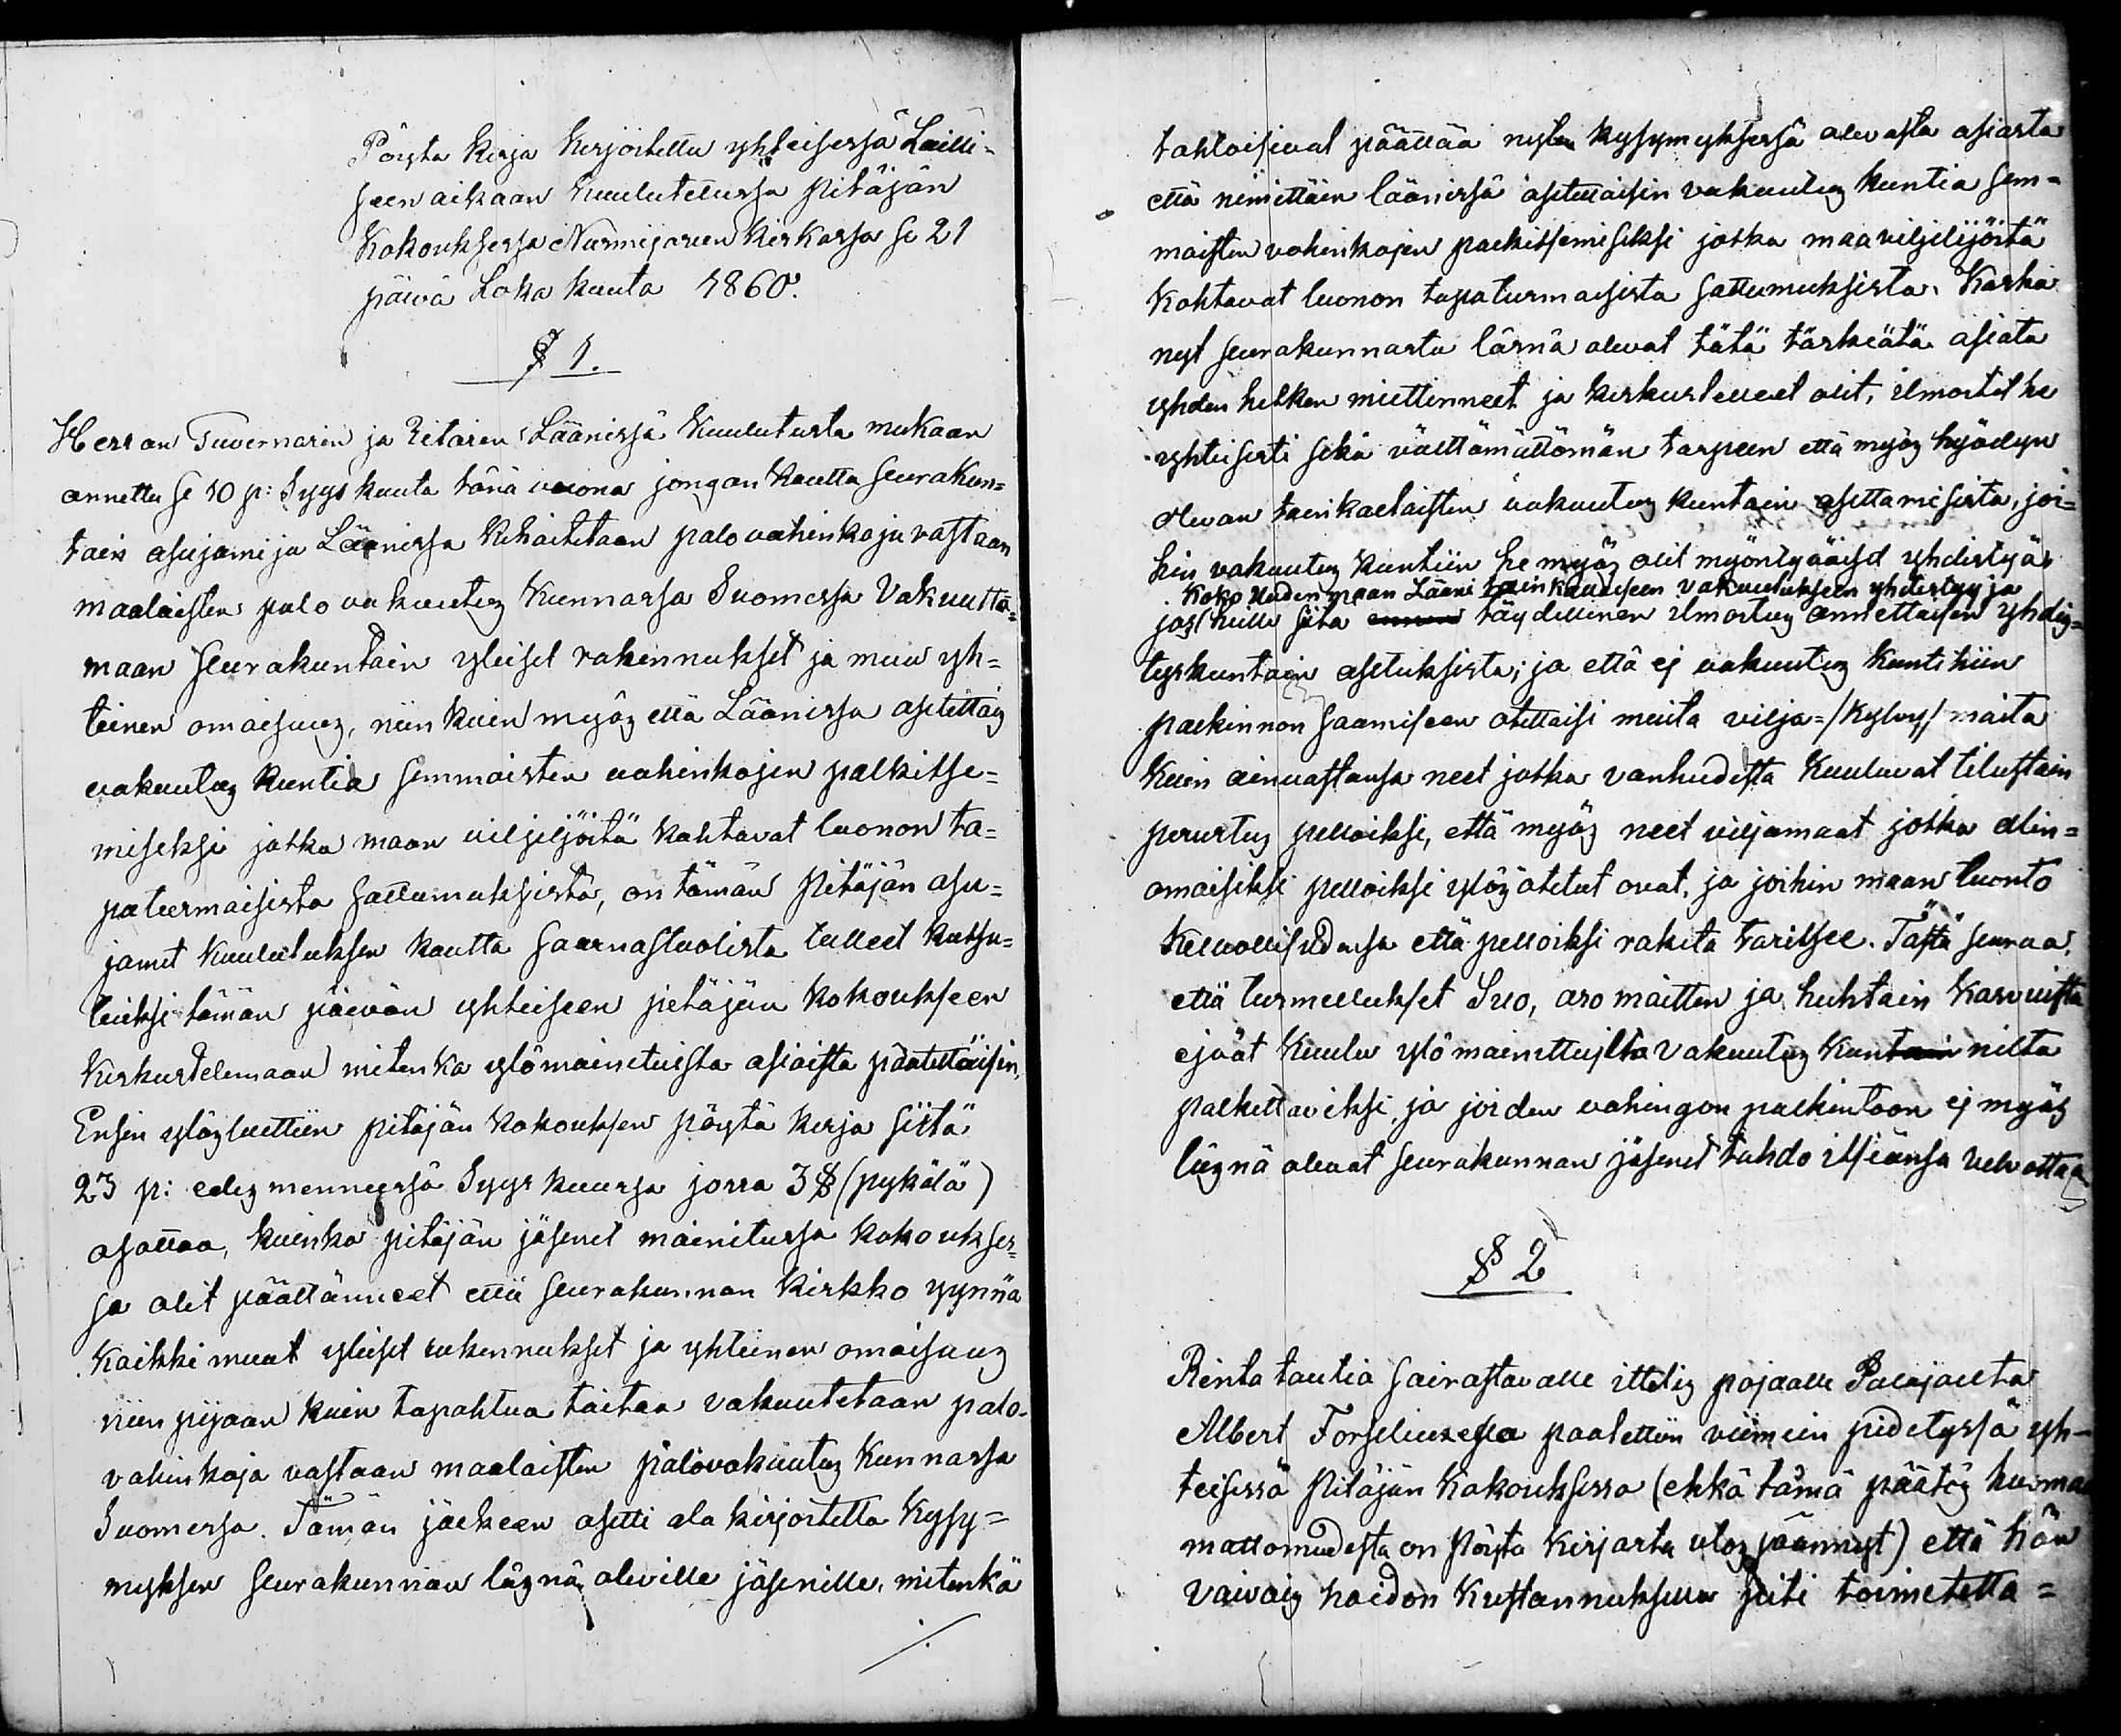 Pöyta Kirja kirjoitettu yhteisesä Lailli-
seen aikaan kuulutetussa pitäjän
Kokouksessa Nurmijärven kirkossa se 21
päivä Loka kuuta 1860.
§ 1.
Herran Kuvernörin ja Ritarin Läänissä Kuulutusta mukaan
annettu se 10 p: Syys kuuta tänä vuona jongan kautta seurakun=
tain asujamija Läänissa kehoitetaan palo vahinkoja vastaan
maalaisten palo vakuutuz kunnassa Suomessa Vakuutta=
maan seurakuntain yleiset rakennukset ja muu yh=
teinen omaisuuz, niin kuin myöz että Läänissa asetettaiz
vakuutuz kuntia semmoisten vahinkojen palkitse=
miseksi jotka maan viljeljöitä kohtavat luonon ta=
paturmaisista sattumuksista, on tämän Pitäjän asu=
jamet kuulutuksen kautta saarnastuolista tulleet kutsu=
tuiksi tämän päivän yhteiseen pitäjän Kokoukseen
keskustelemaan mitenka ylömainetuista asioista päätettäisin,
Ensin ylözluettiin pitäjän Kokouksen pöytä kirja siitä
23 p: edez menneessä Syys kuussa jossa 3 § (pykälä)
osottaa, kuinka pitäjän jäsenet mainitussa kokoukses=
sa olit päättänneet että seurakunnan kirkko yynnä
Kaikki muut yleiset rakennukset ja yhteinen omaisuuz
niin pijaan kuin tapahtua taitaa vakuutetaan palo-
vahinkoja vastaan maalaisten palovakuutuz Kunnassa
Suomessa. Tämän jälkeen asetti ala kirjoitettu Kysy=
myksen seurakunnan läznä oleville jäsenille, mitenkä
./.
tahtoisivat päättää nyt kysymyksessä olevasta asiasta
että nimittäin läänissä asetettaisin vakuutuz kuntia sem=
moisten vahinkojen palkitsemiseksi jotka maaviljelijöitä
Kohtavat luonon tapaturmaisista sattumuksista. Koska
nyt seurakunnasta läsnä olevat tätä tärkeätä asiata
yhden hetken miettinneet ja keskustelleet olit, ilmoitit he
yhteisesti sekä välttämättömän tarpeen että myöz hyödyn
olevan tainkaltaisten vakuutuz kuntain asettamisesta, joi=
hin vakuutuz kuntiin he myöz olit myöntyväiset yhdistyä
Koko Uuden maan Lääni tainkaltaiseen vakuutukseen yhdistyy ja
joz heille siitä täydellinen ilmoituz annettaisen yhdiz=
tyskuntain asetuksista; ja että ej vakuutuz kuntihiin
palkinnon saamiseen otettaisi muita vilja=/kylvy/ maita
Kuin ainuastansa neet jotka vanhudesta kuuluvat tilustain
perustuz pelloiksi, että myöz neet viljamaat jotka alin=
omaisiksi pelloiksi ylözotetut ovat, ja joihin maan luonto
kelvollisudensa että pelloiksi rakita taritsee. Tästä seuraa,
että turmellukset Suo, aro maitten ja huhtain Kasvuista
ejvät kuulu ylö mainittujlta Vakuutuz kunnilta
palkittaviksi, ja joiden vahingon palkintoon ej myöz
läznä olevat seurakunnan jäsenet tahdo itsiänsa velvottaa
§ 2
Rinta tautia sairastavalle ittelliz pojaalle Palojoelta
Albert Forseliuzesta paatettiin viimein pidetyssä yh-
teisessä Pitäjän Kokouksessa (ehkä tämä päätöz huoma
mattomudesta on Pöyta kirjasta uloz jäännyt) että hän
Vaivaiz hoidon kustannuksella piti toimitetta=